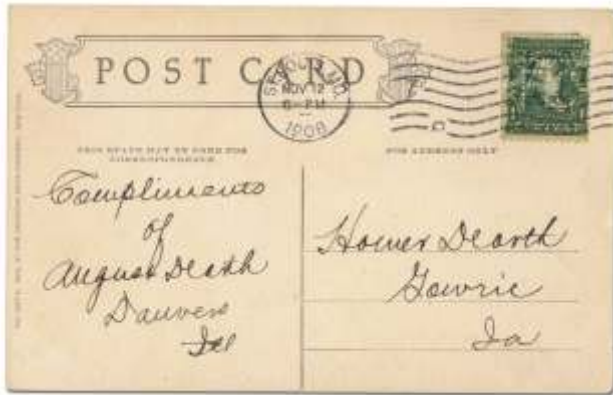 POST CARD
ST. LOUIS, MO.
NOV 12
6-PM
1908
THIS SPACE MAY BE USED FOR
CORRESPONDENCE
FOR ADDRESS ONLY
Compliments
of
August Death
Danvers
Ill
Homer Dearth
Gowrie
Ia